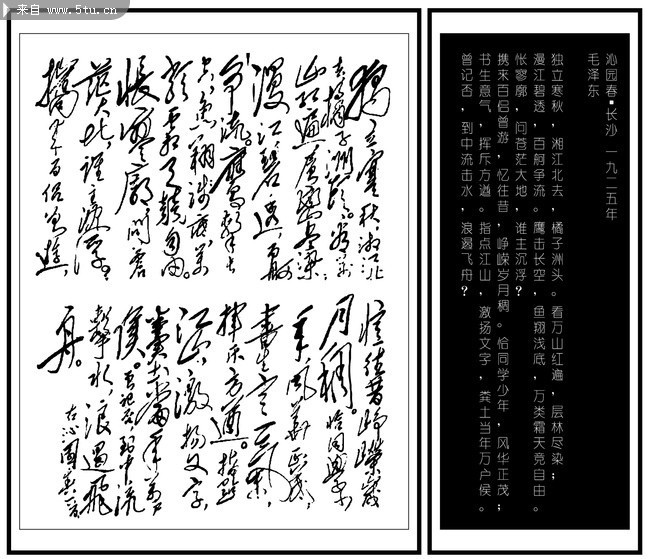 来自 www.5tu.cn
獨立寒秋,湘江北
去,橘子洲頭。看萬
山紅遍,層林盡染,
漫江碧透,百舸
爭流。鷹擊長空,
魚翔淺底,萬
類霜天競自由。
悵寥廓,問蒼
茫大地,誰主沉浮。
攜來百侣曾遊,
憶往昔崢嶸歲
月稠。恰同學少
年,風華正茂,
書生意氣,
揮斥方遒。指點
江山,激揚文字,
糞土當年萬户
侯。曾記否,到中流
擊水,浪遏飛
舟。
右沁園春一首
沁园春·长沙 一九二五年
毛泽东
独立寒秋,湘江北去,橘子洲头。看万山红遍,层林尽染;
漫江碧透,百舸争流。鹰击长空,鱼翔浅底,万类霜天竞自由。
怅寥廓,问苍茫大地,谁主沉浮?
携来百侣曾游,忆往昔,峥嵘岁月稠。恰同学少年,风华正茂;
书生意气,挥斥方遒。指点江山,激扬文字,粪土当年万户侯。
曾记否,到中流击水,浪遏飞舟?